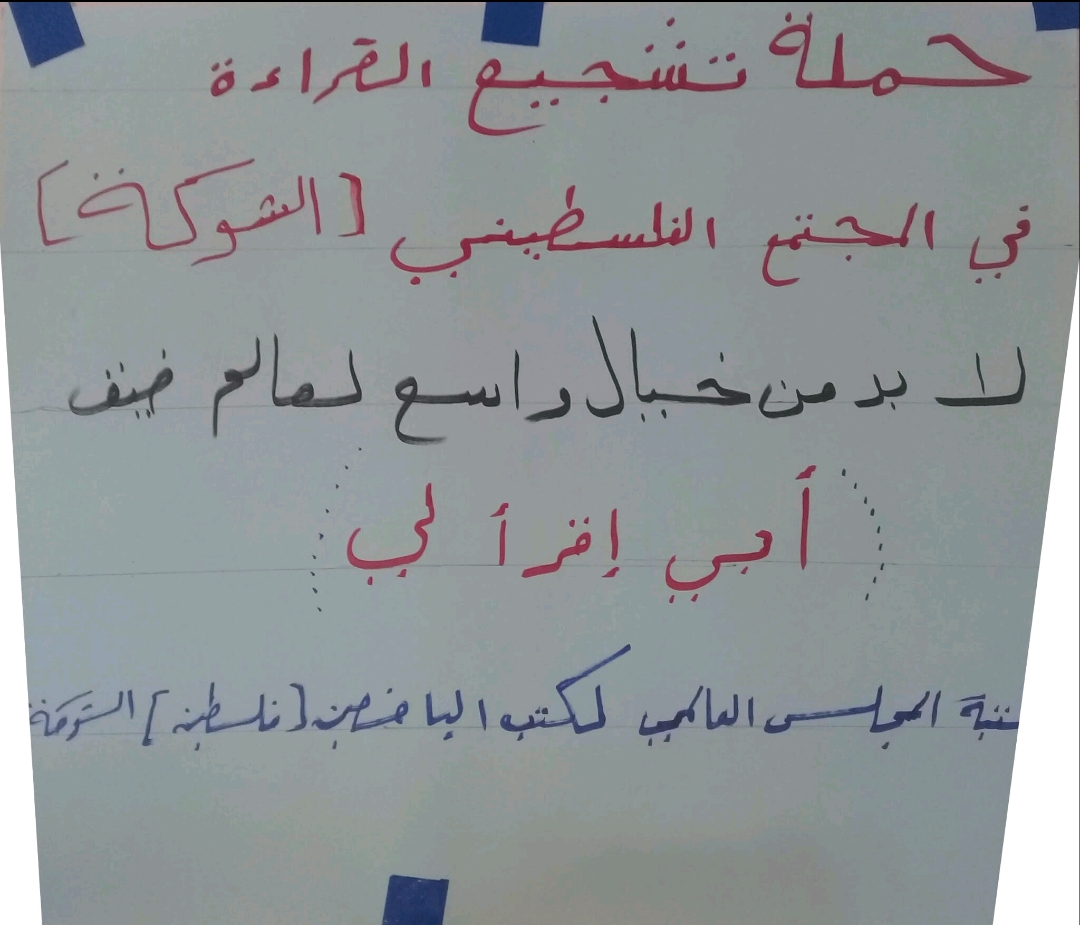 حملة تشجيع القراءة
في المجتمع الفلسطيني [الشوكة]
لا بد من خيال واسع لعالم ضيف
أبي إقرأ لي
المجلس العالمي لكتب اليا فعين [فلسطين] الشوكة